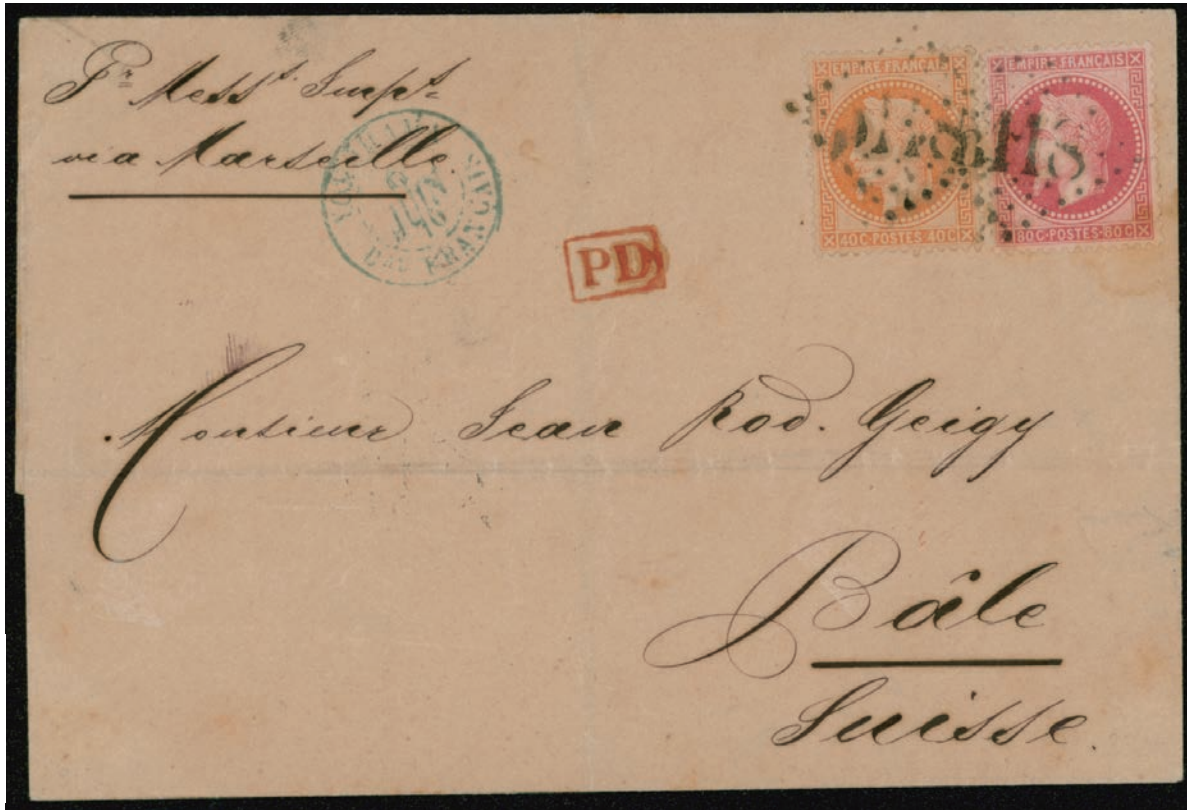 Pr Messrs Imples
via Marseille.
YOKOHAMA
JUIN
70
BAU FRANÇAIS
PD
EMPIRE FRANÇAIS
40C·POSTES·40C
EMPIRE FRANÇAIS
80C·POSTES·80C
Monsieur Jean Rod. Geigy
Bâle
Suisse.